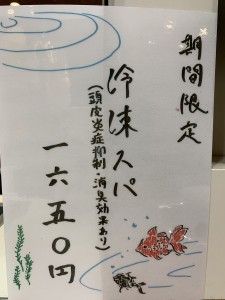 期間限定
冷凍スパ
(頭皮炎症抑制・消臭効果あり)
一六五〇円